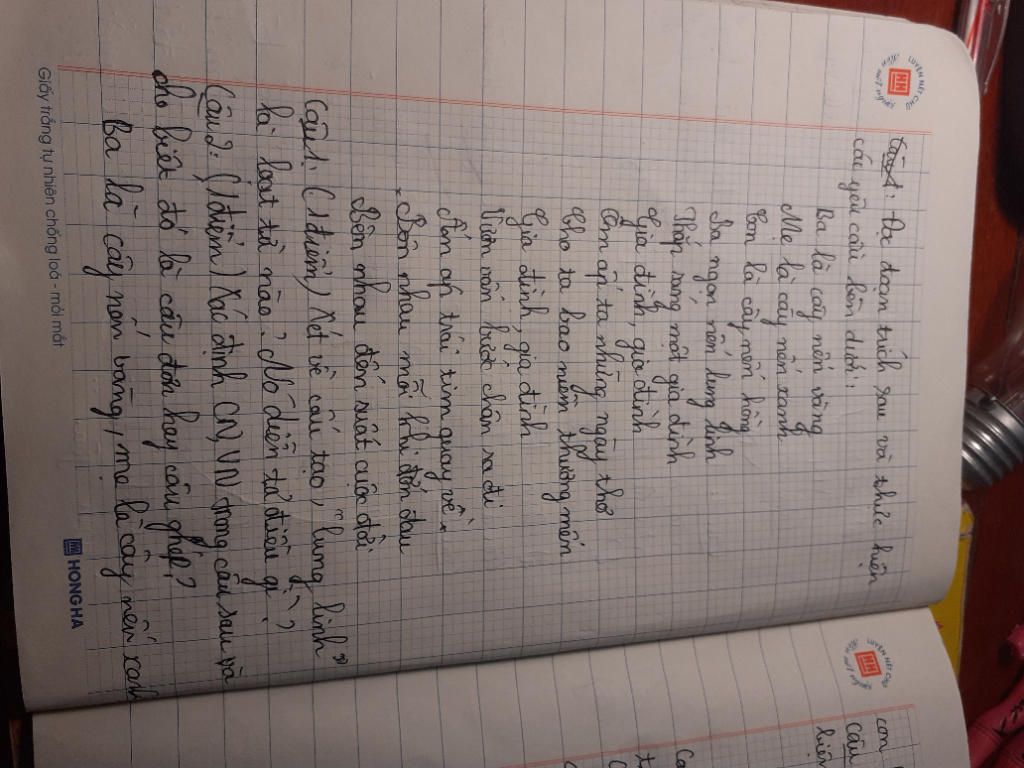 LUYỆN NÉT CHỮ
HH
RÈN NẾT NGƯỜI
Đọc đoạn trích sau và thức hiện
các yêu cầu bên dưới:
Ba là cây nến vàng
Mẹ là cây nến xanh
Con là cây nến hồng
Ba ngọn nến lung linh
Thắp sáng một gia đình
Gia đình, gia đình
Ôm ấp ta những ngày thơ
Cho ta bao niềm thương mến
Gia đình, gia đình
Vươn vấn bước chân ra đi
Ấm áp trái tim quay về
Bên nhau mỗi khi đớn đau
Bên nhau đến suốt cuộc đời
Câu 1: (1 điểm) Xét về cấu tạo, "lung linh"
là loại từ nào? Nó diễn tả điều gì?
Câu 2: (1 điểm) Xác định CN, VN trong câu sau và
cho biết đó là câu đơn hay câu ghép?
Ba là cây nến vàng, mẹ là cây nến xanh
Giấy trắng tự nhiên chống loá - mỏi mắt
HONG HA
LUYỆN NÉT CHỮ
HH
RÈN NẾT NGƯỜI
con
câu
hiện